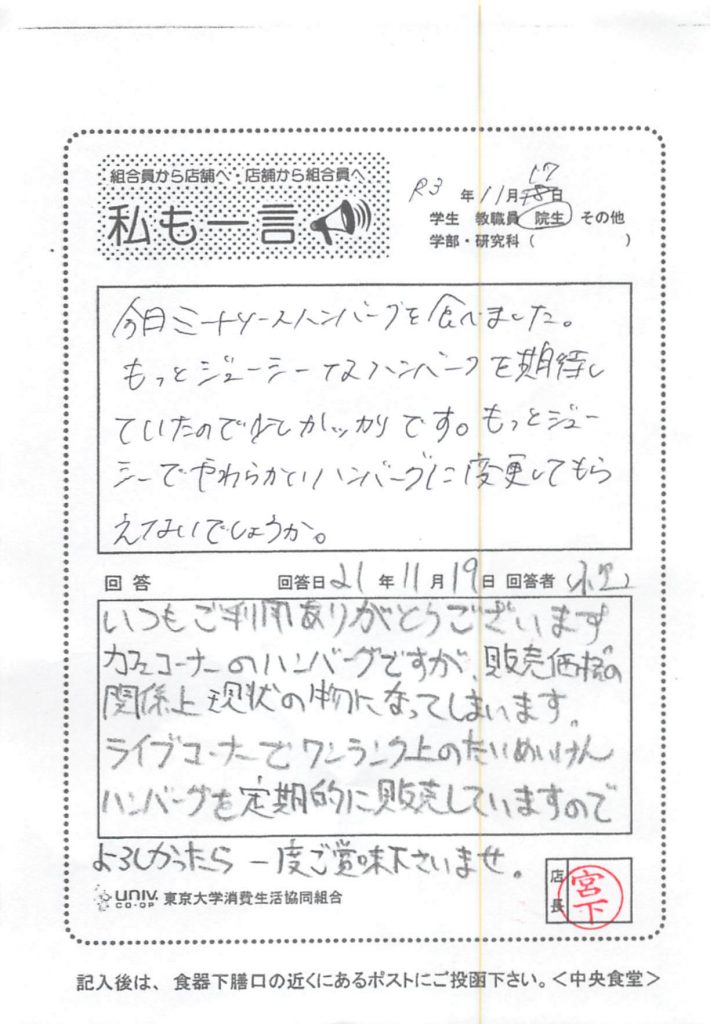 組合員から店舗へ・店舗から組合員へ
私も一言
R3 年 11月 17日
学生 教職員 院生 その他
学部・研究科 ( )
今日ミートソースハンバーグを食べました。
もっとジューシーなハンバーグを期待し
ていたので少しガッカリです。もっとジュー
シーでやわらかいハンバーグに変更してもら
えないでしょうか。
回答 回答日 21 年 11 月 19 日 回答者
いつもご利用ありがとうございます
カフェコーナーのハンバーグですが、販売価格の
関係上現状の物になってしまいます。
ライブコーナーでワンランク上のたいめいけん
ハンバーグを定期的に販売していますので
よろしかったら一度ご賞味下さいませ。
UNIV. CO-OP 東京大学消費生活協同組合
店長 宮下
記入後は、食器下膳口の近くにあるポストにご投函下さい。<中央食堂>